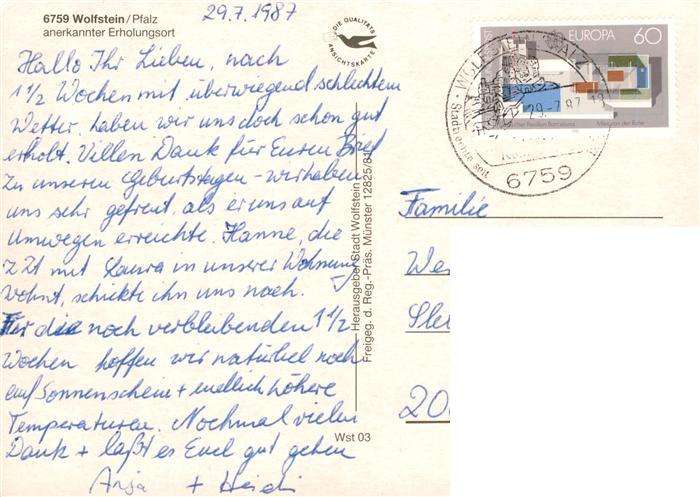 6759 Wolfstein/Pfalz
anerkannter Erholungsort
29.7.1987
Hallo Ihr Lieben, nach
1 1/2 Wochen mit überwiegend schlichtem
Wetter, haben wir uns doch schon gut
erholt. Villen Dank für Euren Brief
Zu unseren Geburtstagen - wir haben
uns sehr gefreut, als er uns auf
Umwegen erreichte. Hanne, die
z Zt mit Laura in unserer Wohnung
wohnt, schickte ihn uns nach.
Für die noch verbleibenden 1 1/2
Wochen hoffen wir natürlich noch
auf Sonnenschein + endlich höhere
Temperaturen. Nochmal vielen
Dank + laßt es Euch gut gehen
Anja + Heidi
DIE QUALITÄTS
ANSICHTSKARTE
Herausgeber Stadt Wolfstein
Freigeg. d. Reg.-Präs. Münster 12825/84
Wst 03
EUROPA 60
Pavillon Barcelona
29.-7.87
6759
Familie
We
20